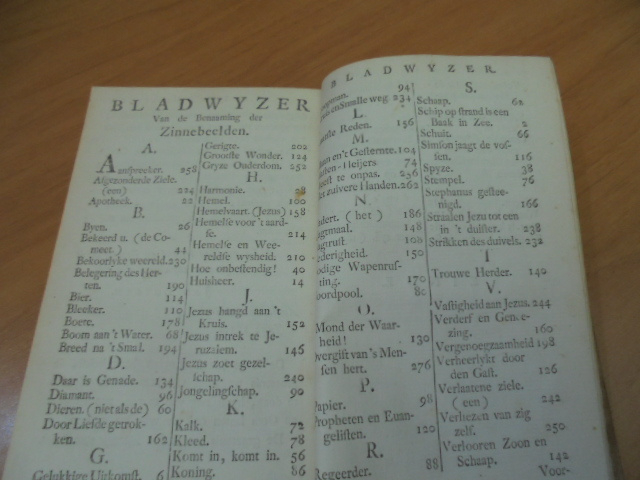 BLADWYZER
Van de Benaaming der
Zinnebeelden.
A.
Aanspreeker. 258
Afgezonderde Ziele.
(een) 224
Apotheek. 22
B.
Byen. 26
Bekeerd u. (de Co-
meet.) 44
Bekoorlyke weereld. 230
Belegering des Her-
ten. 190
Bier. 114
Bleeker. 110
Boete. 178
Boom aan't Water. 68
Breed na't Smal. 194
D.
Daar is Genade. 134
Diamant. 96
Dieren. (niet als de) 60
Door Liefde getrok-
ken. 162
G.
Gelukkige Uitkomst. 6
Gerigte. 202
Grootste Wonder. 124
Gryze Ouderdom. 252
H.
Harmonie. 28
Hemel. 100
Hemelvaart. (Jezus) 158
Hemelse voor't aard-
se. 214
Hemelse en Wee-
reldse wysheid. 210
Hoe onbestendig! 40
Huisheer. 14
J.
Jezus hangd aan't
Kruis. 152
Jezus intrek te Je-
ruzalem. 146
Jezus zoet gezel-
schap. 240
Jongelingschap. 90
K.
Kalk. 72
Kleed. 78
Komt in, komt in. 56
Koning. 86
BLADWYZER.
94
en Smalle weg. 234
L.
Reden. 156
M.
en't Gesternte. 104
Heijers 74
te onpas. 236
zuivere Handen. 262
N
(het) 186
148
108
150
Wapenrus-
ting. 170
80
O.
Mond der Waar-
heid! 130
van's Men-
schen hert. 276
P.
Papier. 98
Propheten en Euan-
gelisten. 120
R.
Regeerder. 88
S.
Schaap. 62
Schip op strand is een
Baak in Zee. 2
Schuit. 66
Simson jaagt de vos-
sen. 116
Spyze. 38
Stempel. 76
Stephanus gestee-
nigd. 166
Straalen Jezu tot een
in't duister. 238
Strikken des duivels. 232
T
Trouwe Herder. 140
V.
Vastigheid aan Jezus. 244
Verderf en Genee-
zing. 160
Vergenoegzaamheid 198
Verheerlykt door
den Gast. 126
Verlaatene ziele.
(een) 242
Verliezen van zig
zelf. 250
Verlooren Zoon en
Schaap. 142
Voor-